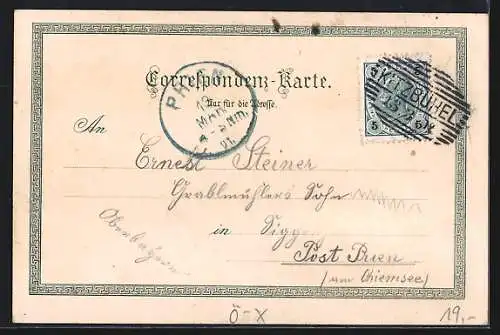 Correspondenz-Karte.
Nur für die Adresse.
KITZBÜHEL
5 5
PRIEN
13
MAR
An
Ernest Steiner
Grablmühlers Sohn
in Siggen
Post Prien
(am Chiemsee)
Oberbayern
Ö-X
19,-